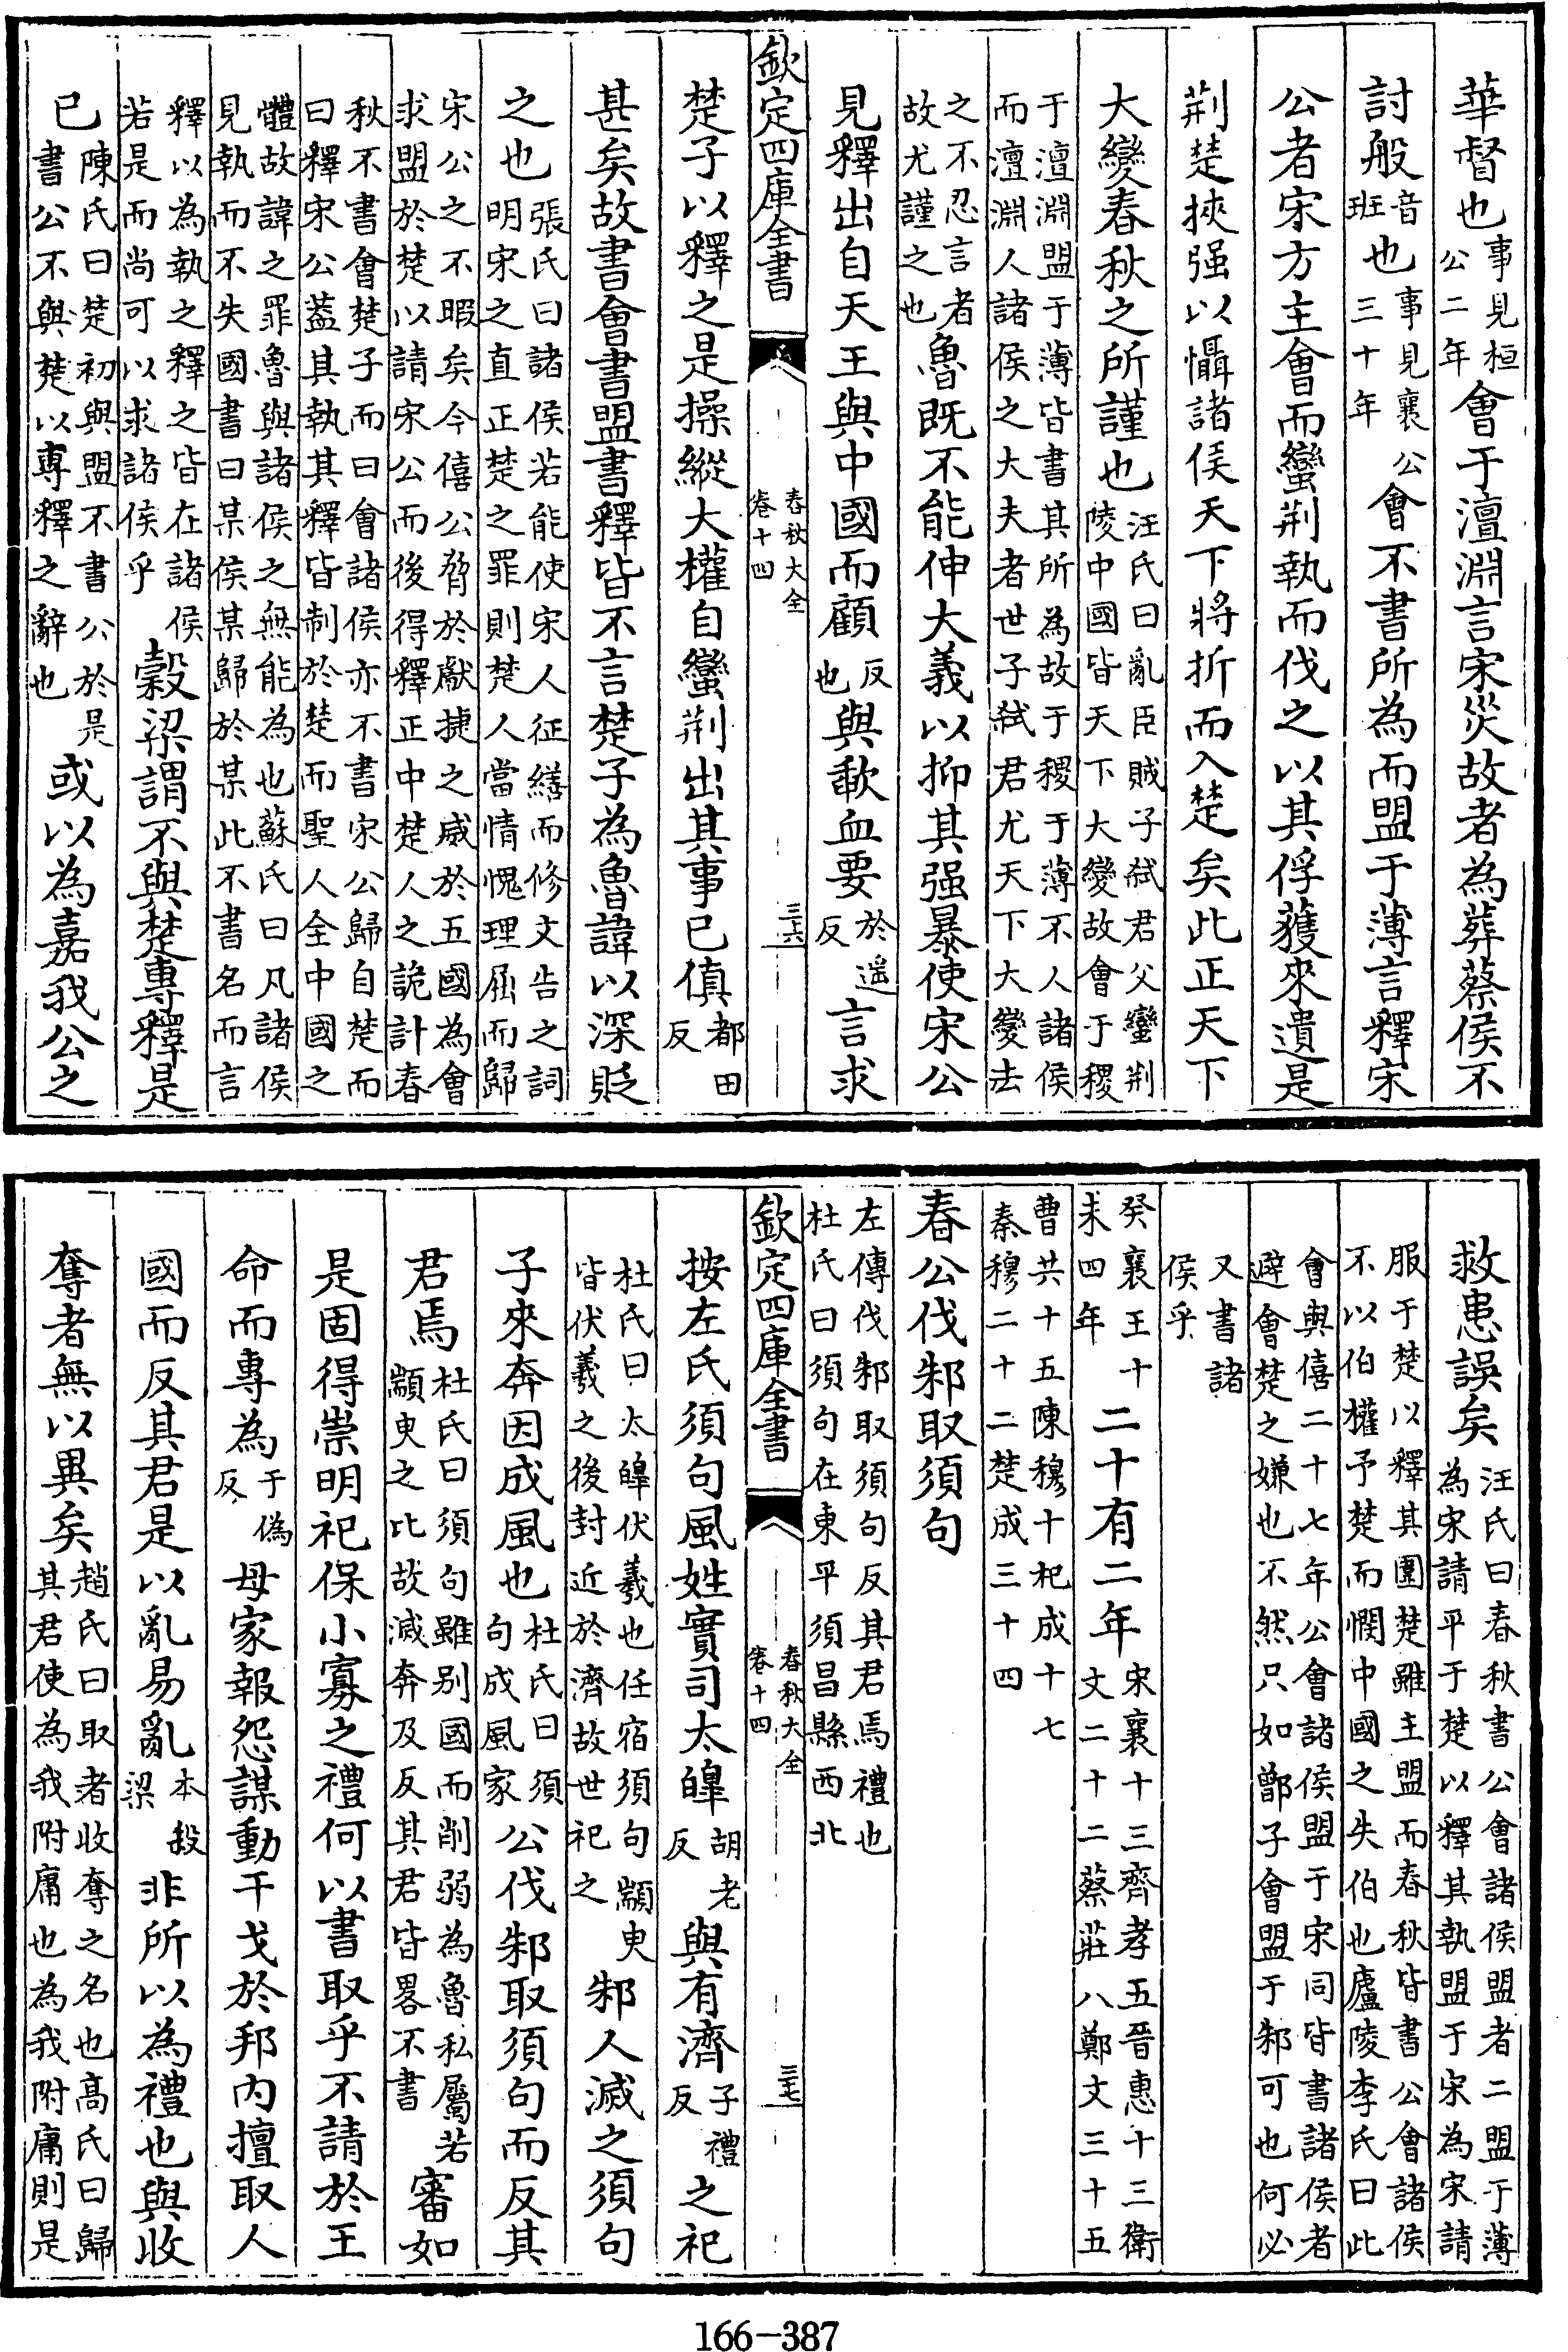 華督也事見桓公二年會于澶淵言宋災故者為葬蔡侯不
討般音班也事見襄公三十年會不書所為而盟于薄言釋宋
公者宋方主會而蠻荆執而伐之以其俘獲來遺是
荆楚挾强以懾諸侯天下將折而入楚矣此正天下
大變春秋之所謹也汪氏曰亂臣賊子弑君父蠻荆陵中國皆天下大變故會于稷
于澶淵盟于薄皆書其所為故于稷于薄不人諸侯而澶淵人諸侯之大夫者世子弑君尤天下大變去
之不忍言者故尤謹之也魯既不能伸大義以抑其强暴使宋公
見釋出自天王與中國而顧反也與歃血要於遥反言求
欽定四庫全書 春秋大全 卷十四 三六
楚子以釋之是操縱大權自蠻荆出其事已傎都田反
甚矣故書會書盟書釋皆不言楚子為魯諱以深貶
之也張氏曰諸侯若能使宋人征繕而修文告之詞明宋之直正楚之罪則楚人當情愧理屈而歸
宋公之不暇矣今僖公脅於獻捷之威於五國為會求盟於楚以請宋公而後得釋正中楚人之詭計春
秋不書會楚子而曰會諸侯亦不書宋公歸自楚而曰釋宋公蓋其執其釋皆制於楚而聖人全中國之
體故諱之罪魯與諸侯之無能為也蘇氏曰凡諸侯見執而不失國書曰某侯某歸於某此不書名而言
釋以為執之釋之皆在諸侯若是而尚可以求諸侯乎穀梁謂不與楚專釋是
已陳氏曰楚初與盟不書公於是書公不與楚以專釋之辭也或以為嘉我公之
救患誤矣汪氏曰春秋書公會諸侯盟者二盟于薄為宋請平于楚以釋其執盟于宋為宋請
服于楚以釋其圍楚雖主盟而春秋皆書公會諸侯不以伯權予楚而憫中國之失伯也廬陵李氏曰此
會與僖二十七年公會諸侯盟于宋同皆書諸侯者避會楚之嫌也不然只如鄫子會盟于邾可也何必
又書諸侯乎
癸未襄王十四年二十有二年宋襄十三齊孝五晉惠十三衛文二十二蔡莊八鄭文三十五
曹共十五陳穆十杞成十七秦穆二十二楚成三十四
春公伐邾取須句
左傳伐邾取須句反其君焉禮也杜氏曰須句在東平須昌縣西北
欽定四庫全書 春秋大全 卷十四 三七
按左氏須句風姓實司太皥胡老反與有濟子禮反之祀
杜氏曰太皥伏羲也任宿須句顓臾皆伏羲之後封近於濟故世祀之邾人滅之須句
子來奔因成風也杜氏曰須句成風家公伐邾取須句而反其
君焉杜氏曰須句雖别國而削弱為魯私屬若顓臾之比故滅奔及反其君皆畧不書審如
是固得崇明祀保小寡之禮何以書取乎不請於王
命而專為于偽反母家報怨謀動干戈於邦内擅取人
國而反其君是以亂易亂本穀梁非所以為禮也與收
奪者無以異矣趙氏曰取者收奪之名也高氏曰歸其君使為我附庸也為我附庸則是
166-387